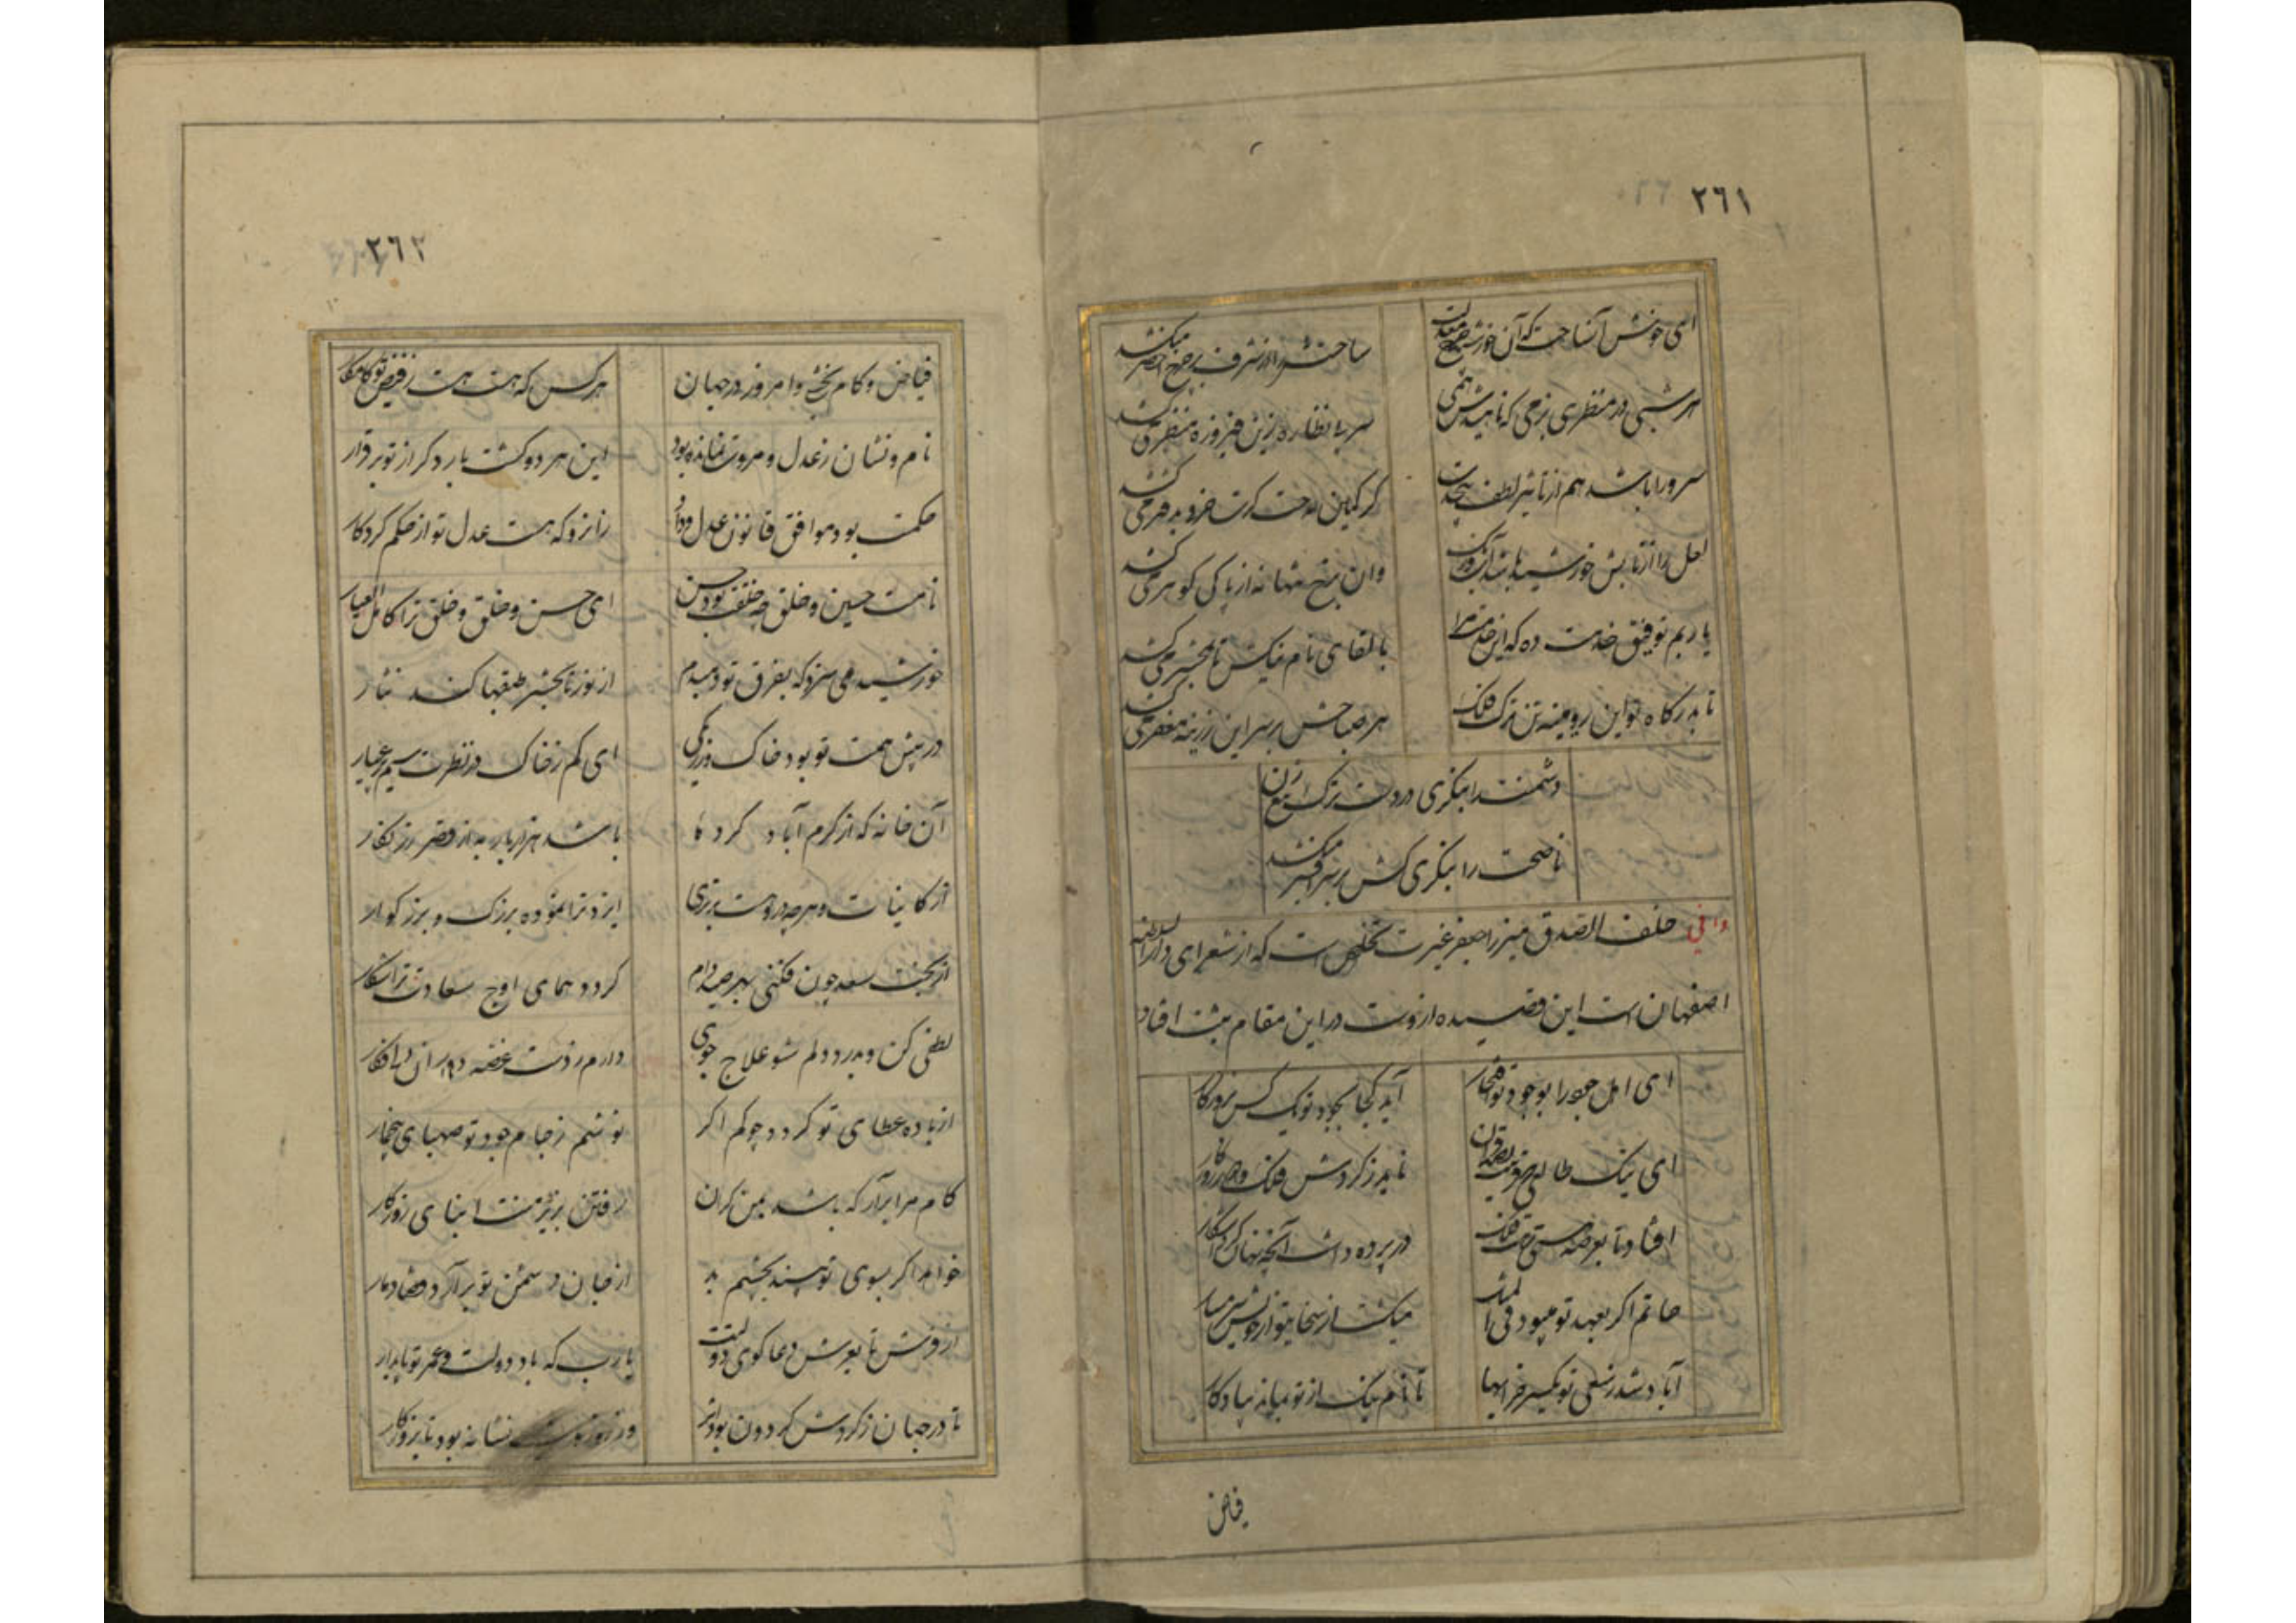 ٢٦١
ای خوش آن ساحت که آن خورشید
ساحتش را از شرف بر چرخ اخضر میکشد
هر شبی در منظری بزمی که ناهیدش همی
سر پی نظاره زین فیروزه منظر
سرو را باشد هم از تاثیر لطف
لعل را از تابش خورشید باشد آب و رنگ
وان نه از پاکی گوهر
یا ربم توفیق خدمت ده که این
با لقای نام نیکش تا بمحشر میکشد
تا بدرگاه تو این رویینه تن ترک فلک
هر صباحش بر سر این زرینه مغفر میکشد
دشمنت را بنگری در دست ترک تیغ زن
ناصحت را بنگری کش بر سر افسر میکشد
وافی خلف الصدق میرزا جعفر غیرت تخلص است که از شعرای دار السلطنه
اصفهان است این قصیده از وست در این مقام ثبت افتاد
ای اهل جود را بوجود تو افتخار
آید کجا بجود تو یک کس بروزگار
ای نیک طالع
ناید ز گردش فلک و دور روزگار
افتاد تا بعرصه هستی
در پرده داشت آنچه نهان کرد آشکار
حاتم اگر بعهد تو میبود فی المثل
میگشت از سخای تو از خویش شرمسار
آباد شد ز سعی تو یکسر خرابها
تا نام نیک از تو بماند بیادگار
فیاض
٢٦٢
فیاض و کام بخش و امروز در جهان
هر کس که هست هست ز فیض تو کامکار
نام و نشان ز عدل و مروت نمانده بود
این هر دو گشت بار دگر از تو برقرار
حکمت بود موافق قانون عدل و داد
زانرو که هست عدل تو از حکم کردگار
نامت حسین و خلق چو خلقت بود حسن
ای حسن و خلق و خلق ترا کامل العیار
خورشید می سزد که بفرق تو دمبدم
از نور تا بحشر طبقها کند نثار
در پیش همت تو بود خاک و زر یکی
ای کم ز خاک در نظرت سیم و زر عیار
آن خانه که از کرم آباد کرده
باشد هزار بار به از قصر زرنگار
از کاینات و هر چه دروست برتری
ایزد ترا نموده بزرک و بزرگوار
از بخت سعد چون فکنی بهر صید دام
گردد همای اوج سعادت ترا شکار
لطفی کن و بدرد دلم شو علاج جوی
دارم ز دست غصه دوران دلی فکار
از باده عطای تو گردد چو کم اگر
نوشم ز جام جود تو صهبای
کام مرا برآر که باشد بمن گران
رفتن بزیر منت ابنای روزگار
خواهد اگر بسوی تو بیند بچشم بد
از جان دشمن تو برآرد قضا دمار
از فرش تا بعرش دعاگوی دولتت
یا رب که باد دولت و عمر تو پایدار
تا در جهان ز گردش گردون بود اثر
نشانه بود تا بروزگار